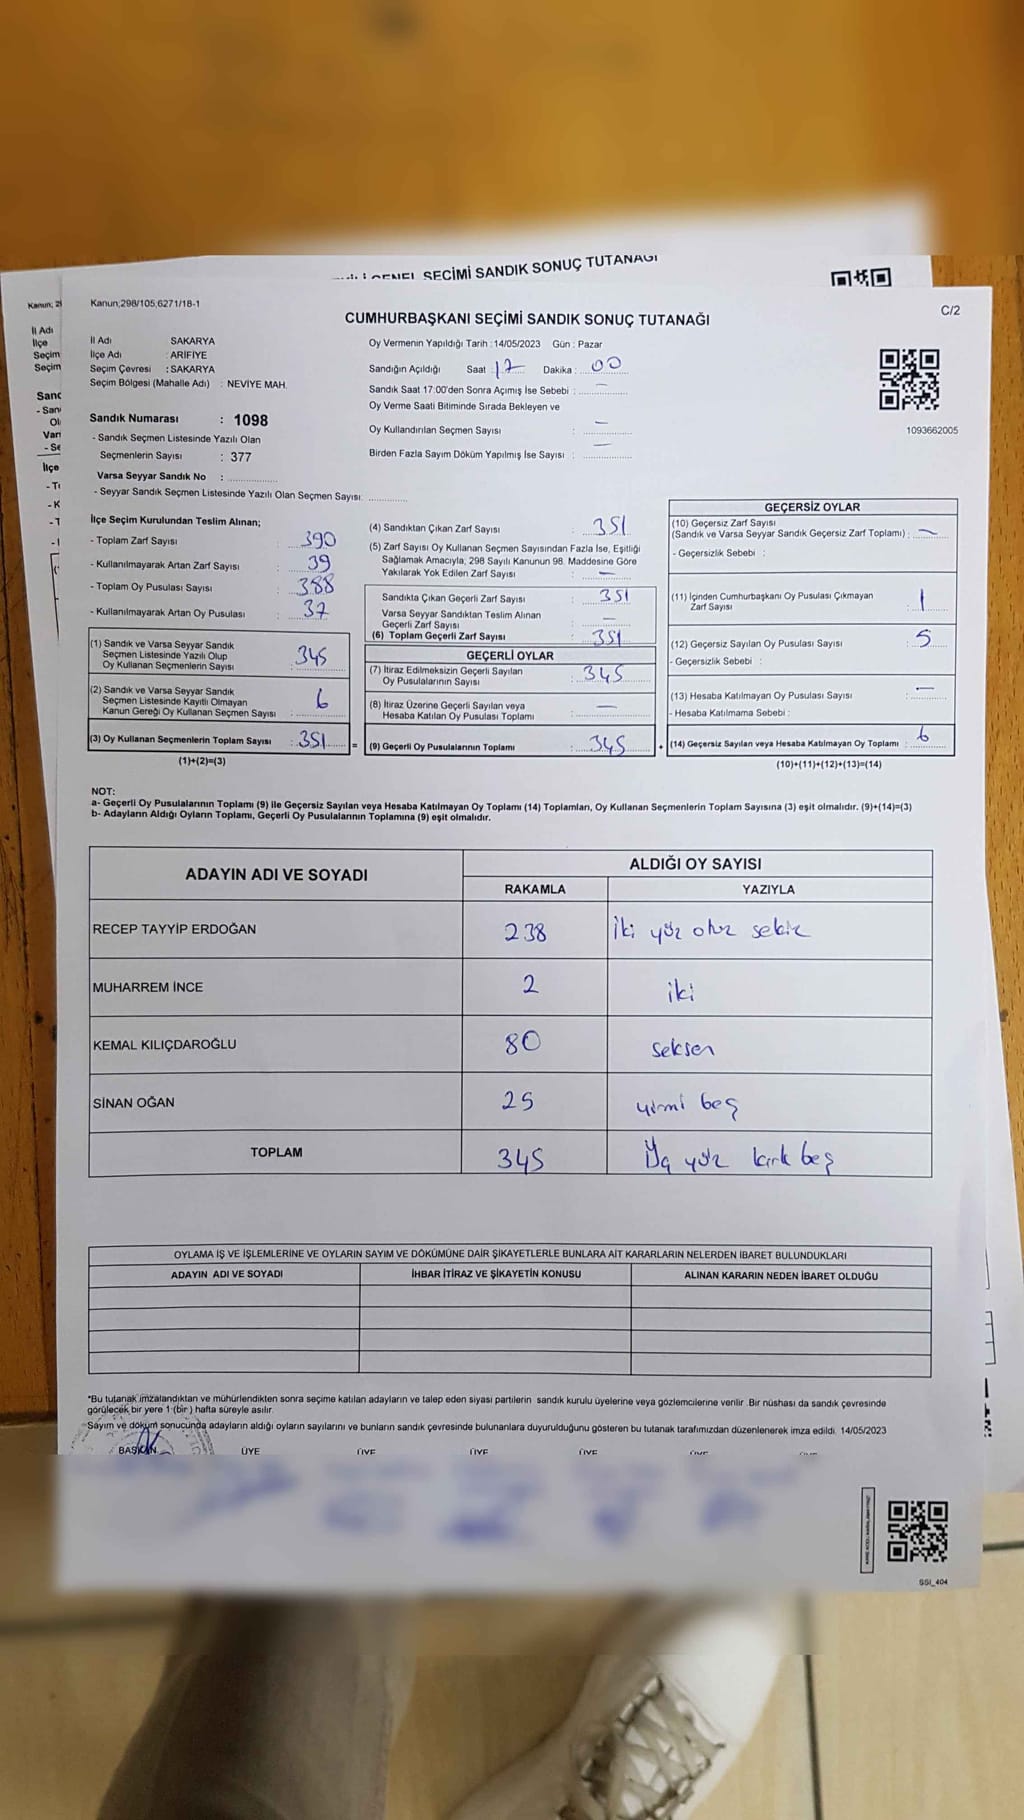 GENEL SEÇİMİ SANDIK SONUÇ TUTANAĞI
Kanun; 29
İl Adı
İlçe
Seçim
Seçim
Kanun;298/105,6271/18-1
C/2
CUMHURBAŞKANI SEÇİMİ SANDIK SONUÇ TUTANAĞI
İl Adı SAKARYA
İlçe Adı : ARİFİYE
Seçim Çevresi : SAKARYA
Seçim Bölgesi (Mahalle Adı) : NEVİYE MAH.
Sandık Numarası : 1098
- Sandık Seçmen Listesinde Yazılı Olan
Seçmenlerin Sayısı : 377
Varsa Seyyar Sandık No :
- Seyyar Sandık Seçmen Listesinde Yazılı Olan Seçmen Sayısı:
Oy Vermenin Yapıldığı Tarih :14/05/2023 Gün : Pazar
Sandığın Açıldığı Saat 17 Dakika : 00
Sandık Saat 17:00'den Sonra Açımış İse Sebebi : —
Oy Verme Saati Bitiminde Sırada Bekleyen ve
Oy Kullandırılan Seçmen Sayısı : —
Birden Fazla Sayım Döküm Yapılmış İse Sayısı : —
1093662005
İlçe Seçim Kurulundan Teslim Alınan;
- Toplam Zarf Sayısı : 390
- Kullanılmayarak Artan Zarf Sayısı : 39
- Toplam Oy Pusulası Sayısı : 388
- Kullanılmayarak Artan Oy Pusulası : 37
(1) Sandık ve Varsa Seyyar Sandık
Seçmen Listesinde Yazılı Olup
Oy Kullanan Seçmenlerin Sayısı : 345
(2) Sandık ve Varsa Seyyar Sandık
Seçmen Listesinde Kayıtlı Olmayan
Kanun Gereği Oy Kullanan Seçmen Sayısı : 6
(3) Oy Kullanan Seçmenlerin Toplam Sayısı : 351 =
(1)+(2)=(3)
(4) Sandıktan Çıkan Zarf Sayısı : 351
(5) Zarf Sayısı Oy Kullanan Seçmen Sayısından Fazla İse, Eşitliği
Sağlamak Amacıyla; 298 Sayılı Kanunun 98. Maddesine Göre
Yakılarak Yok Edilen Zarf Sayısı : —
Sandıkta Çıkan Geçerli Zarf Sayısı : 351
Varsa Seyyar Sandıktan Teslim Alınan
Geçerli Zarf Sayısı : —
(6) Toplam Geçerli Zarf Sayısı : 351
GEÇERLİ OYLAR
(7) İtiraz Edilmeksizin Geçerli Sayılan
Oy Pusulalarının Sayısı : 345
(8) İtiraz Üzerine Geçerli Sayılan veya
Hesaba Katılan Oy Pusulası Toplamı : —
(9) Geçerli Oy Pusulalarının Toplamı : 345 +
GEÇERSİZ OYLAR
(10) Geçersiz Zarf Sayısı
(Sandık ve Varsa Seyyar Sandık Geçersiz Zarf Toplamı) : —
- Geçersizlik Sebebi :
(11) İçinden Cumhurbaşkanı Oy Pusulası Çıkmayan
Zarf Sayısı : 1
(12) Geçersiz Sayılan Oy Pusulası Sayısı : 5
- Geçersizlik Sebebi :
(13) Hesaba Katılmayan Oy Pusulası Sayısı : —
- Hesaba Katılmama Sebebi :
(14) Geçersiz Sayılan veya Hesaba Katılmayan Oy Toplamı : 6
(10)+(11)+(12)+(13)=(14)
NOT:
a- Geçerli Oy Pusulalarının Toplamı (9) ile Geçersiz Sayılan veya Hesaba Katılmayan Oy Toplamı (14) Toplamları, Oy Kullanan Seçmenlerin Toplam Sayısına (3) eşit olmalıdır. (9)+(14)=(3)
b- Adayların Aldığı Oyların Toplamı, Geçerli Oy Pusulalarının Toplamına (9) eşit olmalıdır.
ADAYIN ADI VE SOYADI ALDIĞI OY SAYISI
RAKAMLA YAZIYLA
RECEP TAYYİP ERDOĞAN 238 İki yüz otuz sekiz
MUHARREM İNCE 2 iki
KEMAL KILIÇDAROĞLU 80 seksen
SİNAN OĞAN 25 yirmi beş
TOPLAM 345 Üç yüz kırk beş
OYLAMA İŞ VE İŞLEMLERİNE VE OYLARIN SAYIM VE DÖKÜMÜNE DAİR ŞİKAYETLERLE BUNLARA AİT KARARLARIN NELERDEN İBARET BULUNDUKLARI
ADAYIN ADI VE SOYADI İHBAR İTİRAZ VE ŞİKAYETİN KONUSU ALINAN KARARIN NEDEN İBARET OLDUĞU
*Bu tutanak imzalandıktan ve mühürlendikten sonra seçime katılan adayların ve talep eden siyasi partilerin sandık kurulu üyelerine veya gözlemcilerine verilir .Bir nüshası da sandık çevresinde
görülecek bir yere 1 (bir ) hafta süreyle asılır.
Sayım ve döküm sonucunda adayların aldığı oyların sayılarını ve bunların sandık çevresinde bulunanlara duyurulduğunu gösteren bu tutanak tarafımızdan düzenlenerek imza edildi. 14/05/2023
BAŞKAN ÜYE ÜYE ÜYE ÜYE ÜYE ÜYE
SSI_404